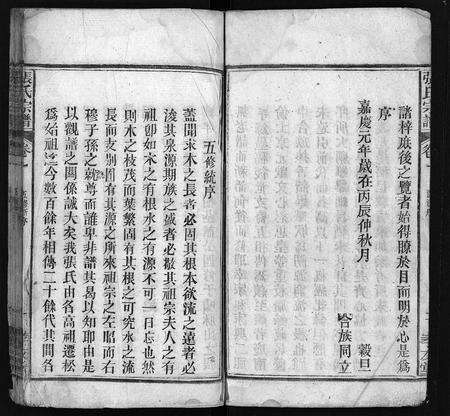 張氏宗譜
卷一
諸梓庶後之覽者始得瞭於目而明於心是爲
序
嘉慶元年歲在丙辰仲秋月
穀旦
合族同立
五修統序
蓋聞求木之長者必固其根本欲流之遠者必
浚其泉源期族之盛者必敬其祖宗夫人之有
祖卽如木之有根水之有源不可一日忘也然
則木之枝茂而葉繁固有其根之可究水之流
長而支別固有其源之所來祖宗之左昭而右
穆子孫之執尊而誰卑非譜其曷以知耶由是
以觀譜之關係誠大矣我張氏由各高祖遷松
爲始祖迄今數百餘年相傳二十餘代其間各
張氏宗譜
卷一